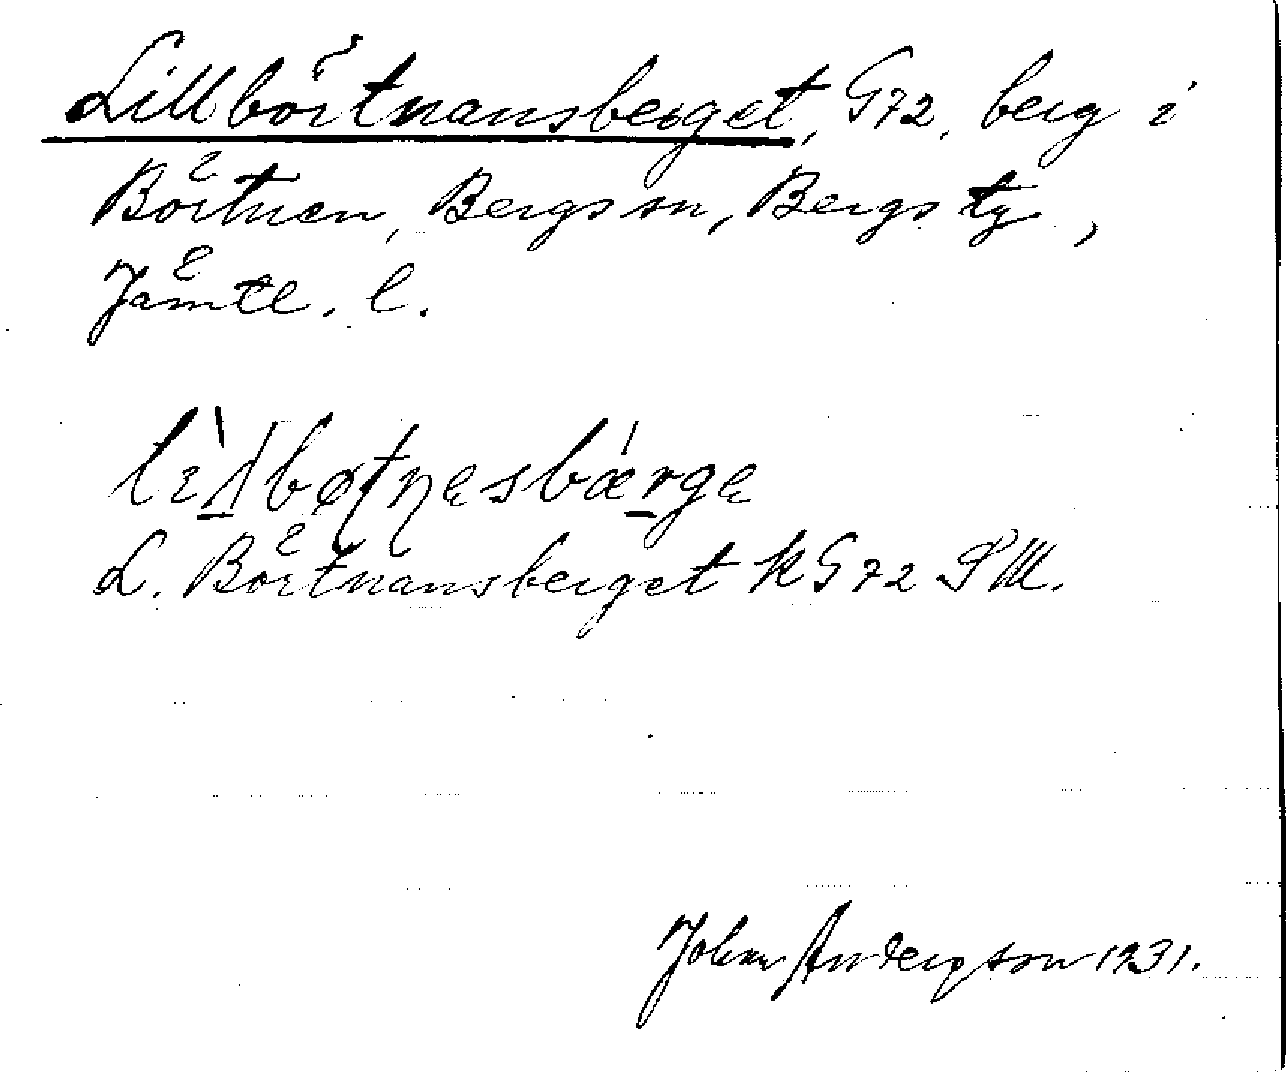 Lillbörtnansberget, G72, berg i
Börtnen, Bergs sn, Bergs tg,
Jämtl. l.
L. Börtnansberget KG72 SVIII.
John Andersson 1931.